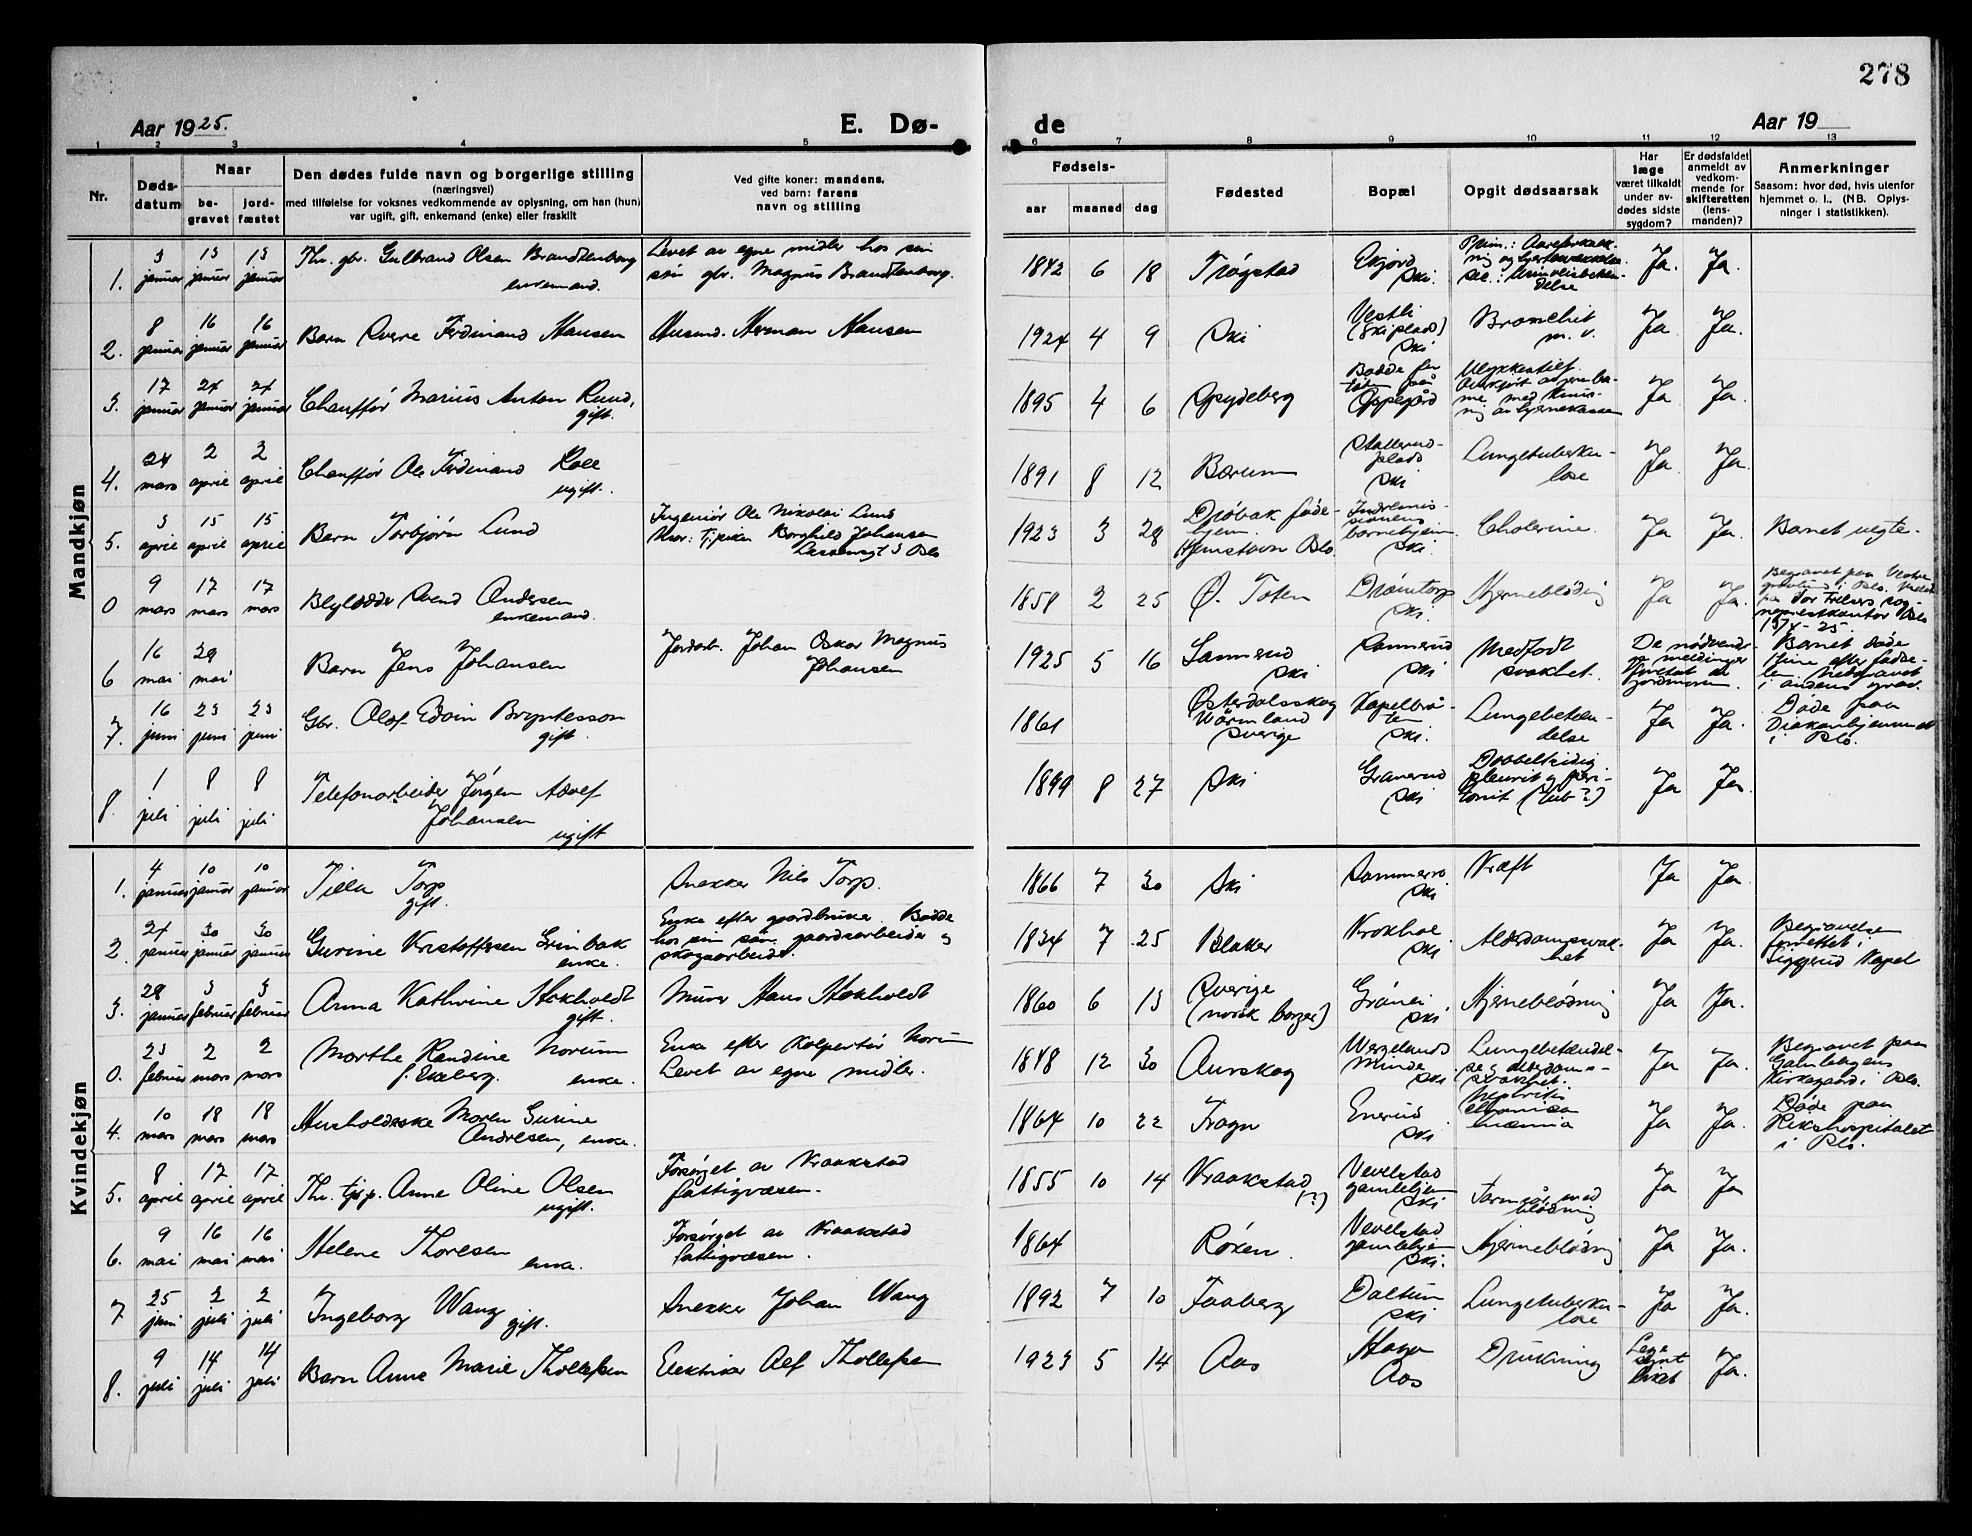 278
Aar 1925.
E. Dø-
de
Aar 19
1 2 3 4 5 6 7 8 9 10 11 12 13
Nr.
Døds-
datum
Naar
be-
gravet
jord-
fæstet
Den dødes fulde navn og borgerlige stilling
(næringsvei)
med tilføielse for voksnes vedkommende av oplysning, om han (hun)
var ugift, gift, enkemand (enke) eller fraskilt
Ved gifte koner: mandens,
ved barn: farens
navn og stilling
Fødsels-
aar maaned dag
Fødested
Bopæl
Opgit dødsaarsak
Har
læge
været tilkaldt
under av-
dødes sidste
sygdom?
Er dødsfaldet
anmeldt av
vedkom-
mende for
skifteretten
(lens-
manden)?
Anmerkninger
Saasom: hvor død, hvis utenfor
hjemmet o. l., (NB. Oplys-
ninger i statistikken).
Mandkjøn
1. 3 januar 13 januar 13 januar
Fhv. gbr. Gulbrand Olsen Brandtenborg
enkemand.
Levet av egne midler hos sin
søn gbr. Magnus Brandtenborg.
1842 6 18 Trøgstad
Ski. Ja. Ja.
2. 8 januar 16 januar 16 januar
Barn Sverre Ferdinand Hansen
Husmd. Herman Hansen
1924 4 9 Ski
Vestli
(Skiplads)
Ski
Bronchit
m. v.
Ja Ja.
3. 17 januar 24 januar 24 januar
Chauffør Marius Anton Rund,
gift.
1895 4 6 Spydeberg
Oppegård
Ja Ja.
4. 24 mars 2 april 2 april
Chauffør Ole Ferdinand Roll
ugift.
1891 8 12 Bærum
plads
Ski
Lungetuberku-
lose
Ja. Ja.
5. 3 april 15 april 15 april
Barn Torbjørn Lund
Ingeniør Ole Nikolai Lund
Mor: tjpike Borghild Johansen
Oslo
1923 3 28
Drøbak føde-
hjem.
Hjemstavn Oslo.
Indremis-
sionens
barnehjem
Ski
Cholerine.
Ja Ja. Barnet uegte.
0 9 mars 17 mars 17 mars
Svend Andersen
enkemand.
1858 2 25 Ø. Toten
Drømtorp
Ski.
Hjerneblødnig
Ja Ja
Begravet paa Vestre
gravlund i Oslo.
15/4-25.
6 16 mai 29 mai
Barn Jens Johansen
Jordarb. Johan Oskar Magnus
Johansen
1925 5 16 Sannerud
Ski
Sannerud
Ski
Medfødt
svakhet.
De nødvend-
ge meldinger
foretat av
jordmoren.
Barnet døde
7. 16 juni 23 juni 23 juni
Gbr. Olof Edvin Bryntesson
gift.
1861 Østerdalsskog
Wärmland
Sverige
Kapelbrå-
ten
Ski.
Lungebeten-
delse
Ja Ja.
Døde paa
Diakonhjemmet
i Oslo.
8. 1 juli 8 juli 8 juli
Telefonarbeider Jørgen Adolf
Johansen
ugift
1899 8 27 Ski
Granerud
Ski
Dobbeltsidig
pleurit og peri-
tonit (tub?)
Ja Ja.
Kvindekjøn
1. 4 januar 10 januar 10 januar
Tilla Torp
gift.
Snekker Nils Torp.
1866 7 30 Ski
Sommerro
Ski
Kræft
Ja Ja.
2. 24 januar 30 januar 30 januar
Gurine Kristoffersen Grinbak
enke.
Enke efter gaardbruker. Bodde
hos sin søn gaardsarbeider og
skogsarbeider.
1834 7 25 Blaker
Krokhol
Ski
Alderdomssvak-
het
Ja Ja.
Begravelse
forrettet i
Siggerud Kapel
3. 28 januar 3 februar 3 februar
Anna Kathrine Stokholdt
gift.
Murer Hans Stokholdt
1860 6 13 Sverige
(norsk borger)
Grønli
Ski
Hjerneblødning
Ja Ja.
0. 23 februar 2 mars 2 mars
Marthe Randine Norum
f. Ekeberg. enke.
Enke efter Kolportør Norum
Levet av egne midler.
1848 12 30 Aurskog
Wergelands
Minde
Ski
Lungebetændel-
se og alderdoms-
svakhet.
Ja Ja.
Begravet paa
Gamlebyens
Kirkegaard i Oslo.
4. 10 mars 18 mars 18 mars
Husholderske Maren Gurine
Andresen, enke.
1864 10 22 Frogn
Enerud
Ski
Nephritis
chronica
Ja Ja.
Døde paa
Rikshospitalet
i Oslo.
5. 8 april 17 april 17 april
Fhv. tjp. Anne Oline Olsen
ugift.
Forsørget av Kraakstad
fattigvæsen.
1855 10 14 Kraakstad
(?)
Vevelstad
gamlehjem
Ski
Tarmsår med
blødning
Ja Ja
6. 9 mai 16 mai 16 mai
Helene Thoresen
enke.
Forsørget av Kraakstad
fattigvæsen.
1864 Røken.
Vevelstad
gamlehjem
Ski.
Hjerneblødnig
Ja Ja.
7 25 juni 2 juli 2 juli
Ingeborg Wang
gift.
Snekker Johan Wang
1892 7 10 Faaberg
Daltun
Ski
Lungetuberku-
lose
Ja Ja.
8. 9 juli 14 juli 14 juli
Barn Anne Marie Thollefsen
Elektriker Alf Thollefsen
1923 5 14 Aas
Aas
Drukning
Ja.